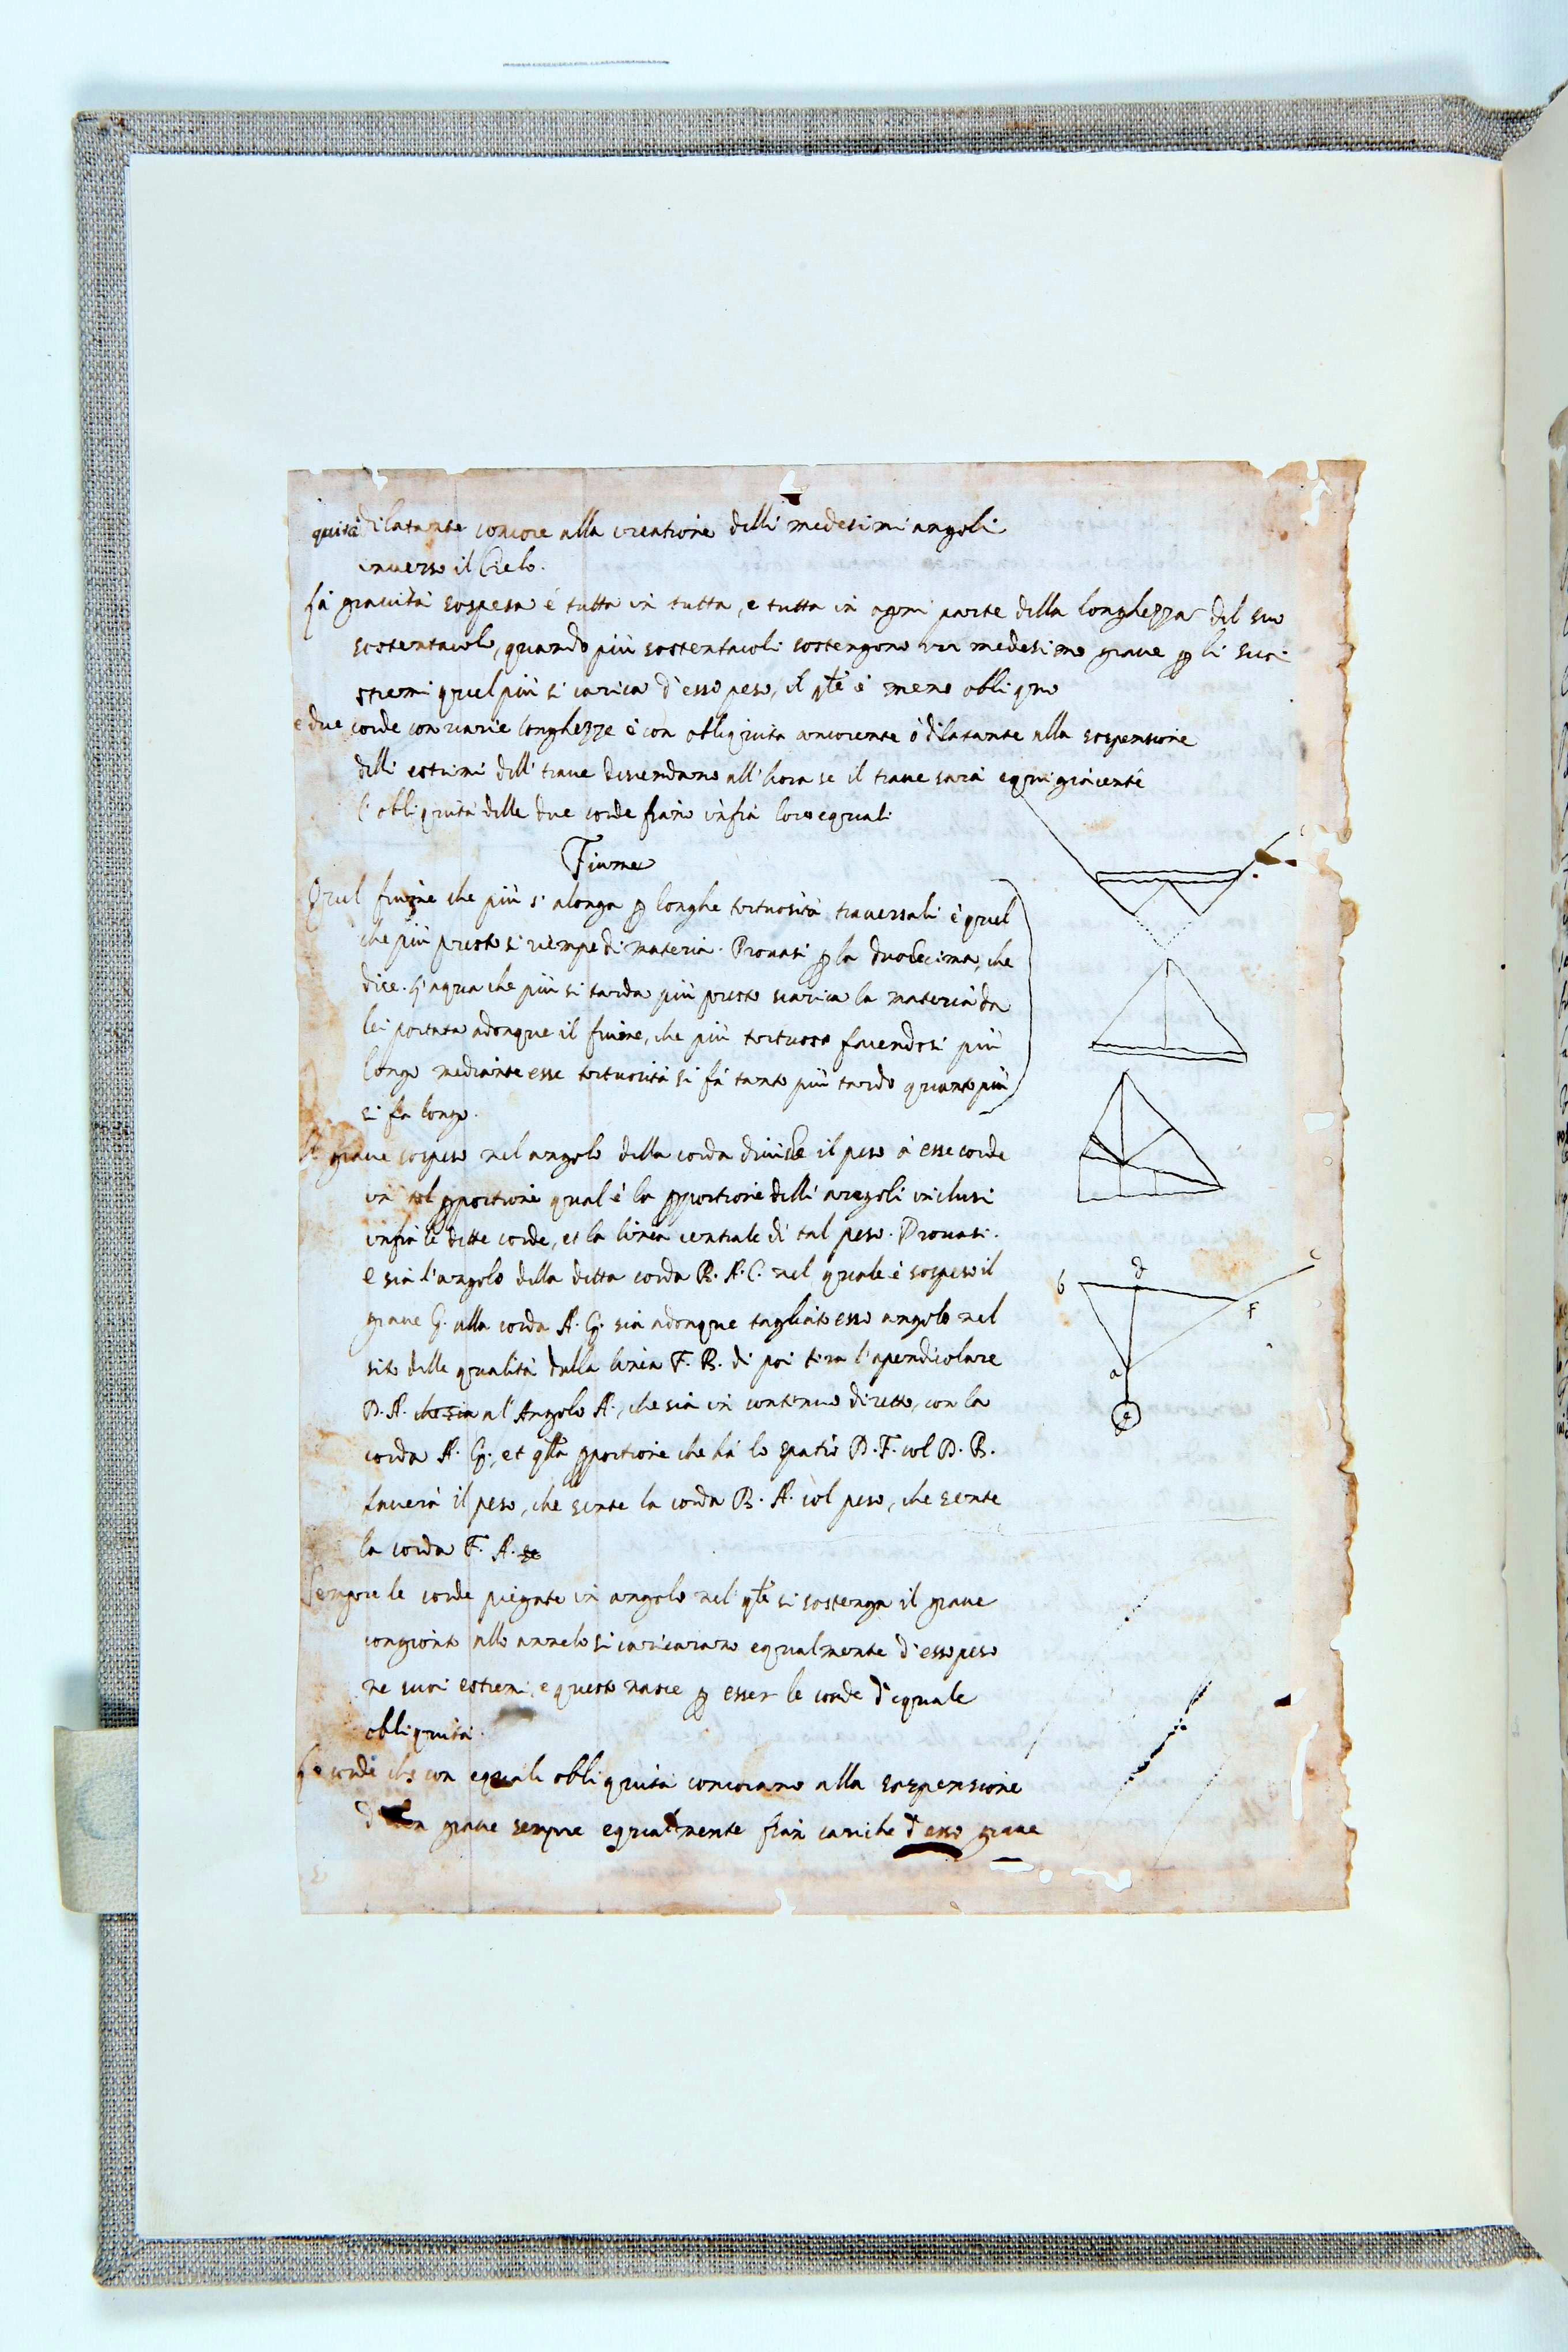 quità dilatante concore alla creatione delli medesimi angoli
inverso il Cielo.
La gravità sospesa è tutta in tutta, e tutta in ogni parte della longhezza del suo
sostentacolo, quando più sostentacoli sostengono un medesimo grave ꝑ li suoi
stremi quel più si carica d'esso peso, il qle è meno obliquo
e due corde con varie longhezze è con obliquità concorente ò dilatante alla sospensione
delli estrimi dell' trave discendano all'hora se il trave sarà equigiacente
l'obliquità delle due corde fiano infra loro equali
Fiume
Quel fiume che più s'alonga ꝑ longhe tortuosità traversali è quel
che più presto si riempe di materia. Provasi ꝑ la duodecima, che
dice. L'aqua che più si tarda più presto scarica la materia da
lei portata adonque il fiume, che più tortuoso facendosi più
longo mediante esse tortuosità si fà tanto più tardo quanto più
si fa longo.
Il grave sospeso nel angolo della corda divide il peso à esse corde
in tal ꝓportione qual è la ꝓportione delli angoli inclusi
infra le dette corde, et la linea centrale di tal peso. Provasi.
e sia l'angolo della ditta corda B. A. C. nel quale è sospeso il
grave G. alla corda A. G. sia adonque tagliato esso angolo nel
sito delle qualità dalla linea F. B. di poi tira l'apendicolare
D. A. che sia al'Angolo A., che sia in continuo diretto, con la
corda A. G., et qlla ꝓportione che hà lo spatio D. F. col D. B.
haverà il peso, che sente la corda B. A. col peso, che sente
la corda F. A. se
Sempre le corde piegate in angolo nel qle si sostenga il grave
congionto allo annelo si caricarano equalmente d'esso peso
ne suoi estremi, e questo nasce ꝑ esser le corde d'equale
obliquità.
Le corde che con equale obliquità concorano alla sospensione
d'un grave sempre equalmente fian cariche d'esso grave
b d c
F
a